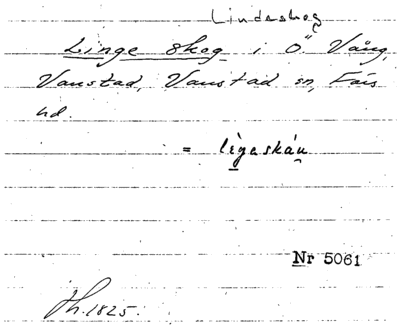 Lindeskog
Linge skog i Ö. Vång,
Vanstad, Vanstad sn, Färs
hd.
= lìgaskáu
Nr 5061
Jh. 1825.